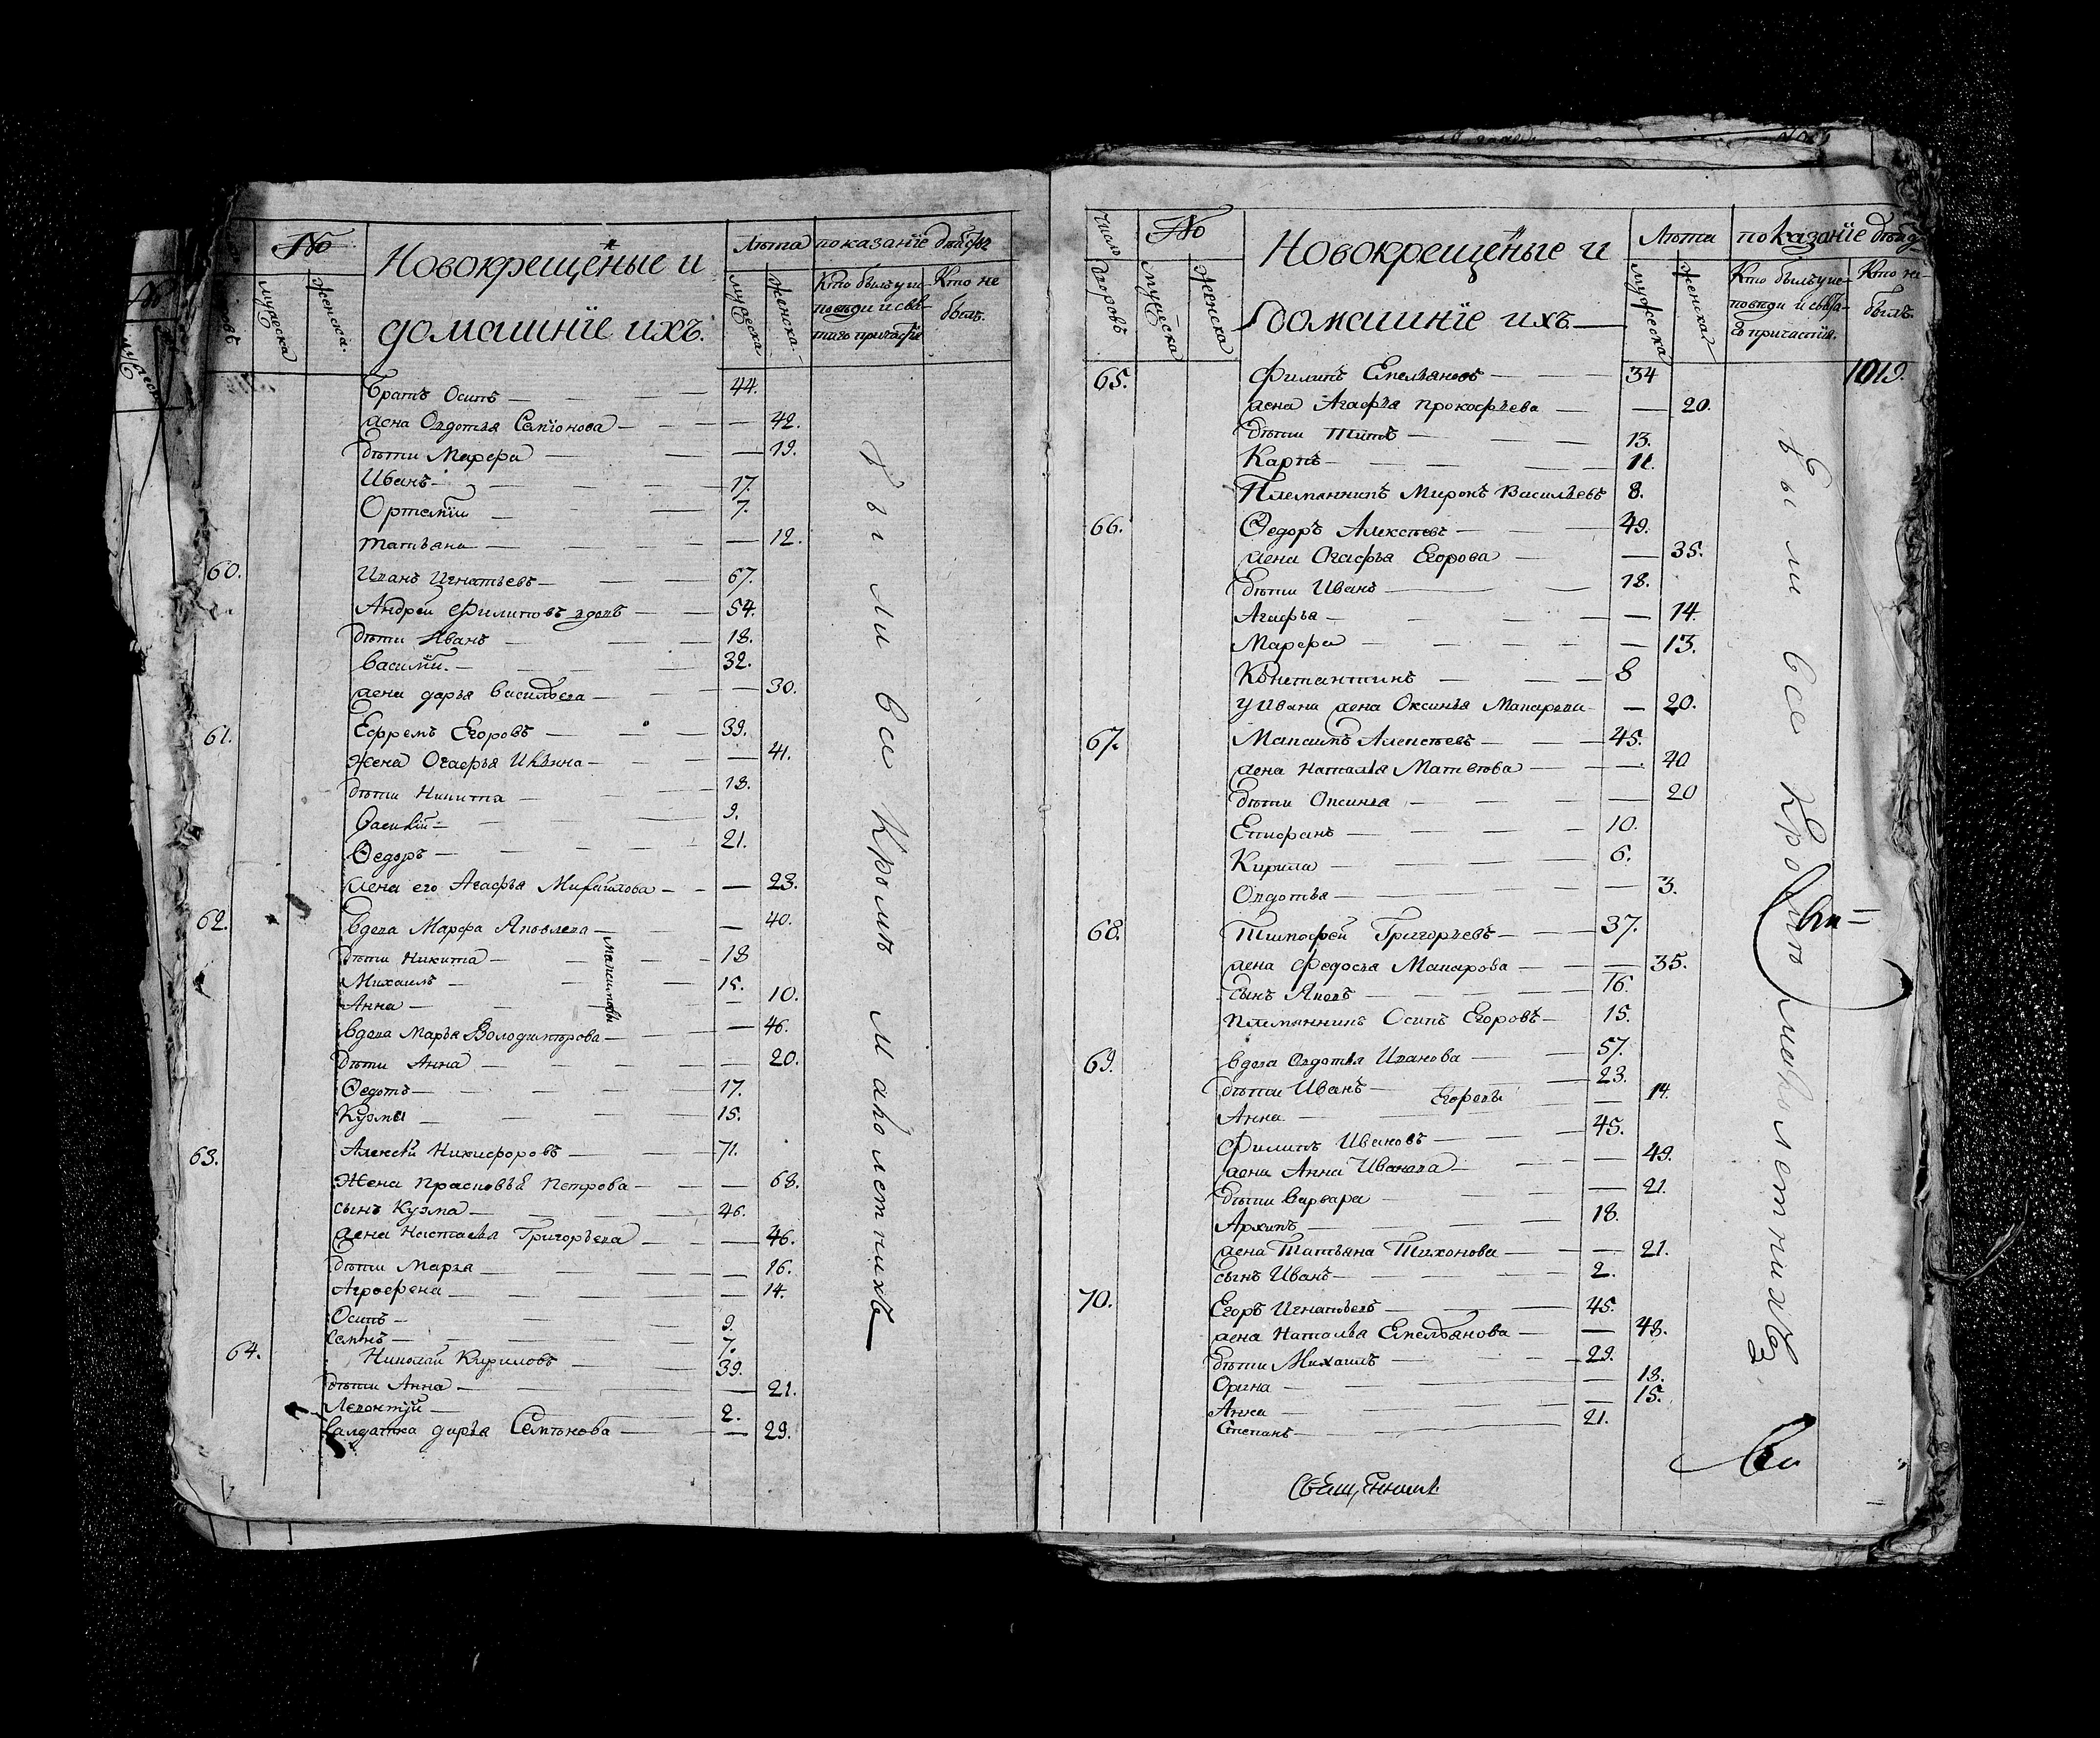 № Новокрещеные и Лѣта показанїе дѣйств
домашнїе ихъ.
мужеска женска. мужеска женска. Кто былъ у ис- Кто не
повѣди и свя- былъ.
таго причастїя
Братъ Осипъ — 44.
жена Овдотья Семионова — 42.
дѣти Марфа — 19.
Иванъ — 17.
Ортемїй — 7.
татьяна — 12.
60. Иванъ Игнатьевъ — 67.
Андрей Филиповъ вдовъ — 54.
дѣти Иванъ — 18.
василїй. — 32.
жена дарья васильева — 30.
61. Ефремъ Егоровъ — 39.
жена Огафья Ильина — 41.
дѣти Никита — 18.
Василїй — 9.
Ѳедоръ — 21.
жена его Агафья Михайлова — 23.
62. вдова Марфа Яковлева — 40.
дѣти Никита — 18
Михаилъ — 15.
Анна — 10.
Максимовы
вдова Марья Володимирова — 46.
дѣти Анна — 20.
Ѳедотъ — 17.
Кузма — 15.
63. Алексѣй Никифоровъ — 71.
жена прасковья Петрова — 68.
сынъ Кузма — 46.
жена Настасья Григорьева — 46.
дѣти Марья — 16.
Аграфена — 14.
Осипъ — 9.
семенъ — 7.
64. Николай Кириловъ — 39.
дѣти Анна — 21.
Леонтїй — 2.
салдатка дарья Семенова — 29.
были вси Кромѣ малолетнихъ
Число дворовъ № Новокрещеные и Лѣта показанїе дѣйс
домашнїе ихъ
мужеска женска мужеска женска Кто былъ у ис- Кто не
повѣди и свята- былъ.
го причастїя.
1019.
65. Филипъ Емельяновъ — 34
жена Агафья прокофьева — 20.
дѣти Титъ — 13.
Карпъ — 11.
Племянникъ Миронъ Васильевъ 8.
66. Ѳедоръ Алексѣевъ — 49.
жена Огафья Егорова — 35.
дѣти Иванъ — 18.
Агафья — 14.
Марфа — 13.
Константинъ — 8
у Ивана жена Оксинья Макарова — 20.
67. Максимъ Алексѣевъ — 45.
жена Наталья Матвѣева — 40
дѣти Оксинья — 20
Епифанъ — 10.
Кирила — 6.
Овдотья — 3.
68. Тимофей Григорьевъ — 37.
жена федосья Макарова — 35.
сынъ Яковъ — 16.
племянникъ Осипъ Егоровъ — 15.
69. вдова Овдотья Иванова — 57.
дѣти Иванъ — 23.
Егоровы
Анна — 14.
Филипъ Ивановъ — 45.
жена Анна Иванова — 49.
дѣти варвара — 21.
Архипъ — 18.
жена Татьяна Тихонова — 21.
сынъ Иванъ — 2.
70. Егоръ Игнатьевъ — 45.
жена Наталья Емельянова — 48.
дѣти Михаилъ — 29.
Орина — 18.
Анна — 15.
Степанъ — 21.
были все Кромѣ малолетнихъ
Священникъ